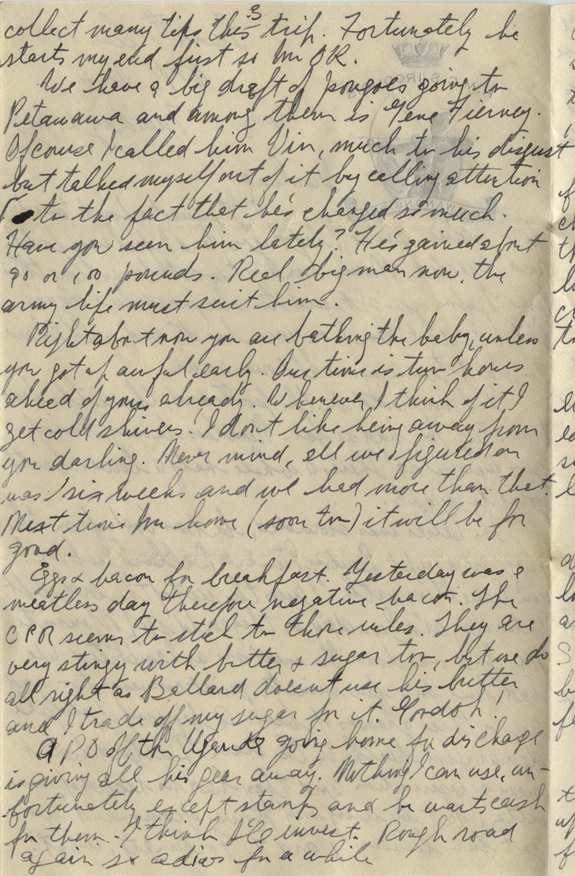 collect many tips this trip. Fortunately he
starts my end first so I'm OK.
We have a big draft of pongoes going to
Petawawa and among them is Gene Tierney.
Ofcourse I called him Vin, much to his disgust
but talked myself out of it by calling attention
to the fact that he's changed so much.
Have you seen him lately? He's gained about
90 or 100 pounds. Real big man now, the
army life must suit him.
Right about now you are bathing the baby, unless
you got up awful early. Our time is two hours
ahead of yours already. Whenever I think of it I
get cold shivers! I don't like being away from
you darling. Never mind, all we figured on
was six weeks and we had more than that.
Next time I'm home (soon too) it will be for
good.
Eggs & bacon for breakfast. Yesterday was a
meatless day therefore negative bacon. The
CPR seems to stick to those rules. They are
very stingy with butter & sugar too, but we do
all right as Ballard doesn't use his butter
and I trade off my sugar for it. Gordon!
A PO off the Uganda going home for discharge
is giving all his gear away. Nothing I can use, un-
fortunately except stamps and he wants cash
for them. I think I'll invest. Rough road
again so adios for a while